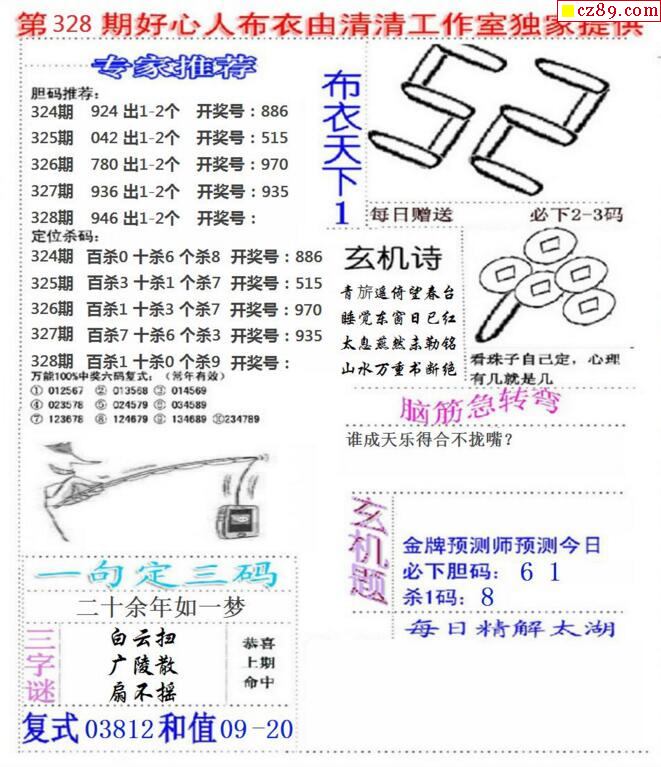 cz89.com
第328期好心人布衣由清清工作室独家提供
专家推荐
胆码推荐：
324期 924 出1-2个 开奖号：886
325期 042 出1-2个 开奖号：515
326期 780 出1-2个 开奖号：970
327期 936 出1-2个 开奖号：935
328期 946 出1-2个 开奖号：
定位杀码：
324期 百杀0 十杀6 个杀8 开奖号：886
325期 百杀3 十杀1 个杀7 开奖号：515
326期 百杀1 十杀3 个杀7 开奖号：970
327期 百杀7 十杀6 个杀3 开奖号：935
328期 百杀1 十杀0 个杀9 开奖号：
万能100%中奖六码复式：（常年有效）
① 012567 ② 013568 ③ 014569
④ 023578 ⑤ 024579 ⑥ 034589
⑦ 123678 ⑧ 124679 ⑨ 134689 ⑩234789
布衣天下1
52
每日赠送 必下2-3码
玄机诗
青旂遥倚望春台
睡觉东窗日已红
太息燕然未勒铭
山水万重书断绝
看珠子自己定，心理
有几就是几
脑筋急转弯
谁成天乐得合不拢嘴？
玄机题
金牌预测师预测今日
必下胆码：6 1
杀1码：8
每日精解太湖
一句定三码
二十余年如一梦
三字谜
白云扫
广陵散
扇不摇
恭喜
上期
命中
复式03812和值09-20